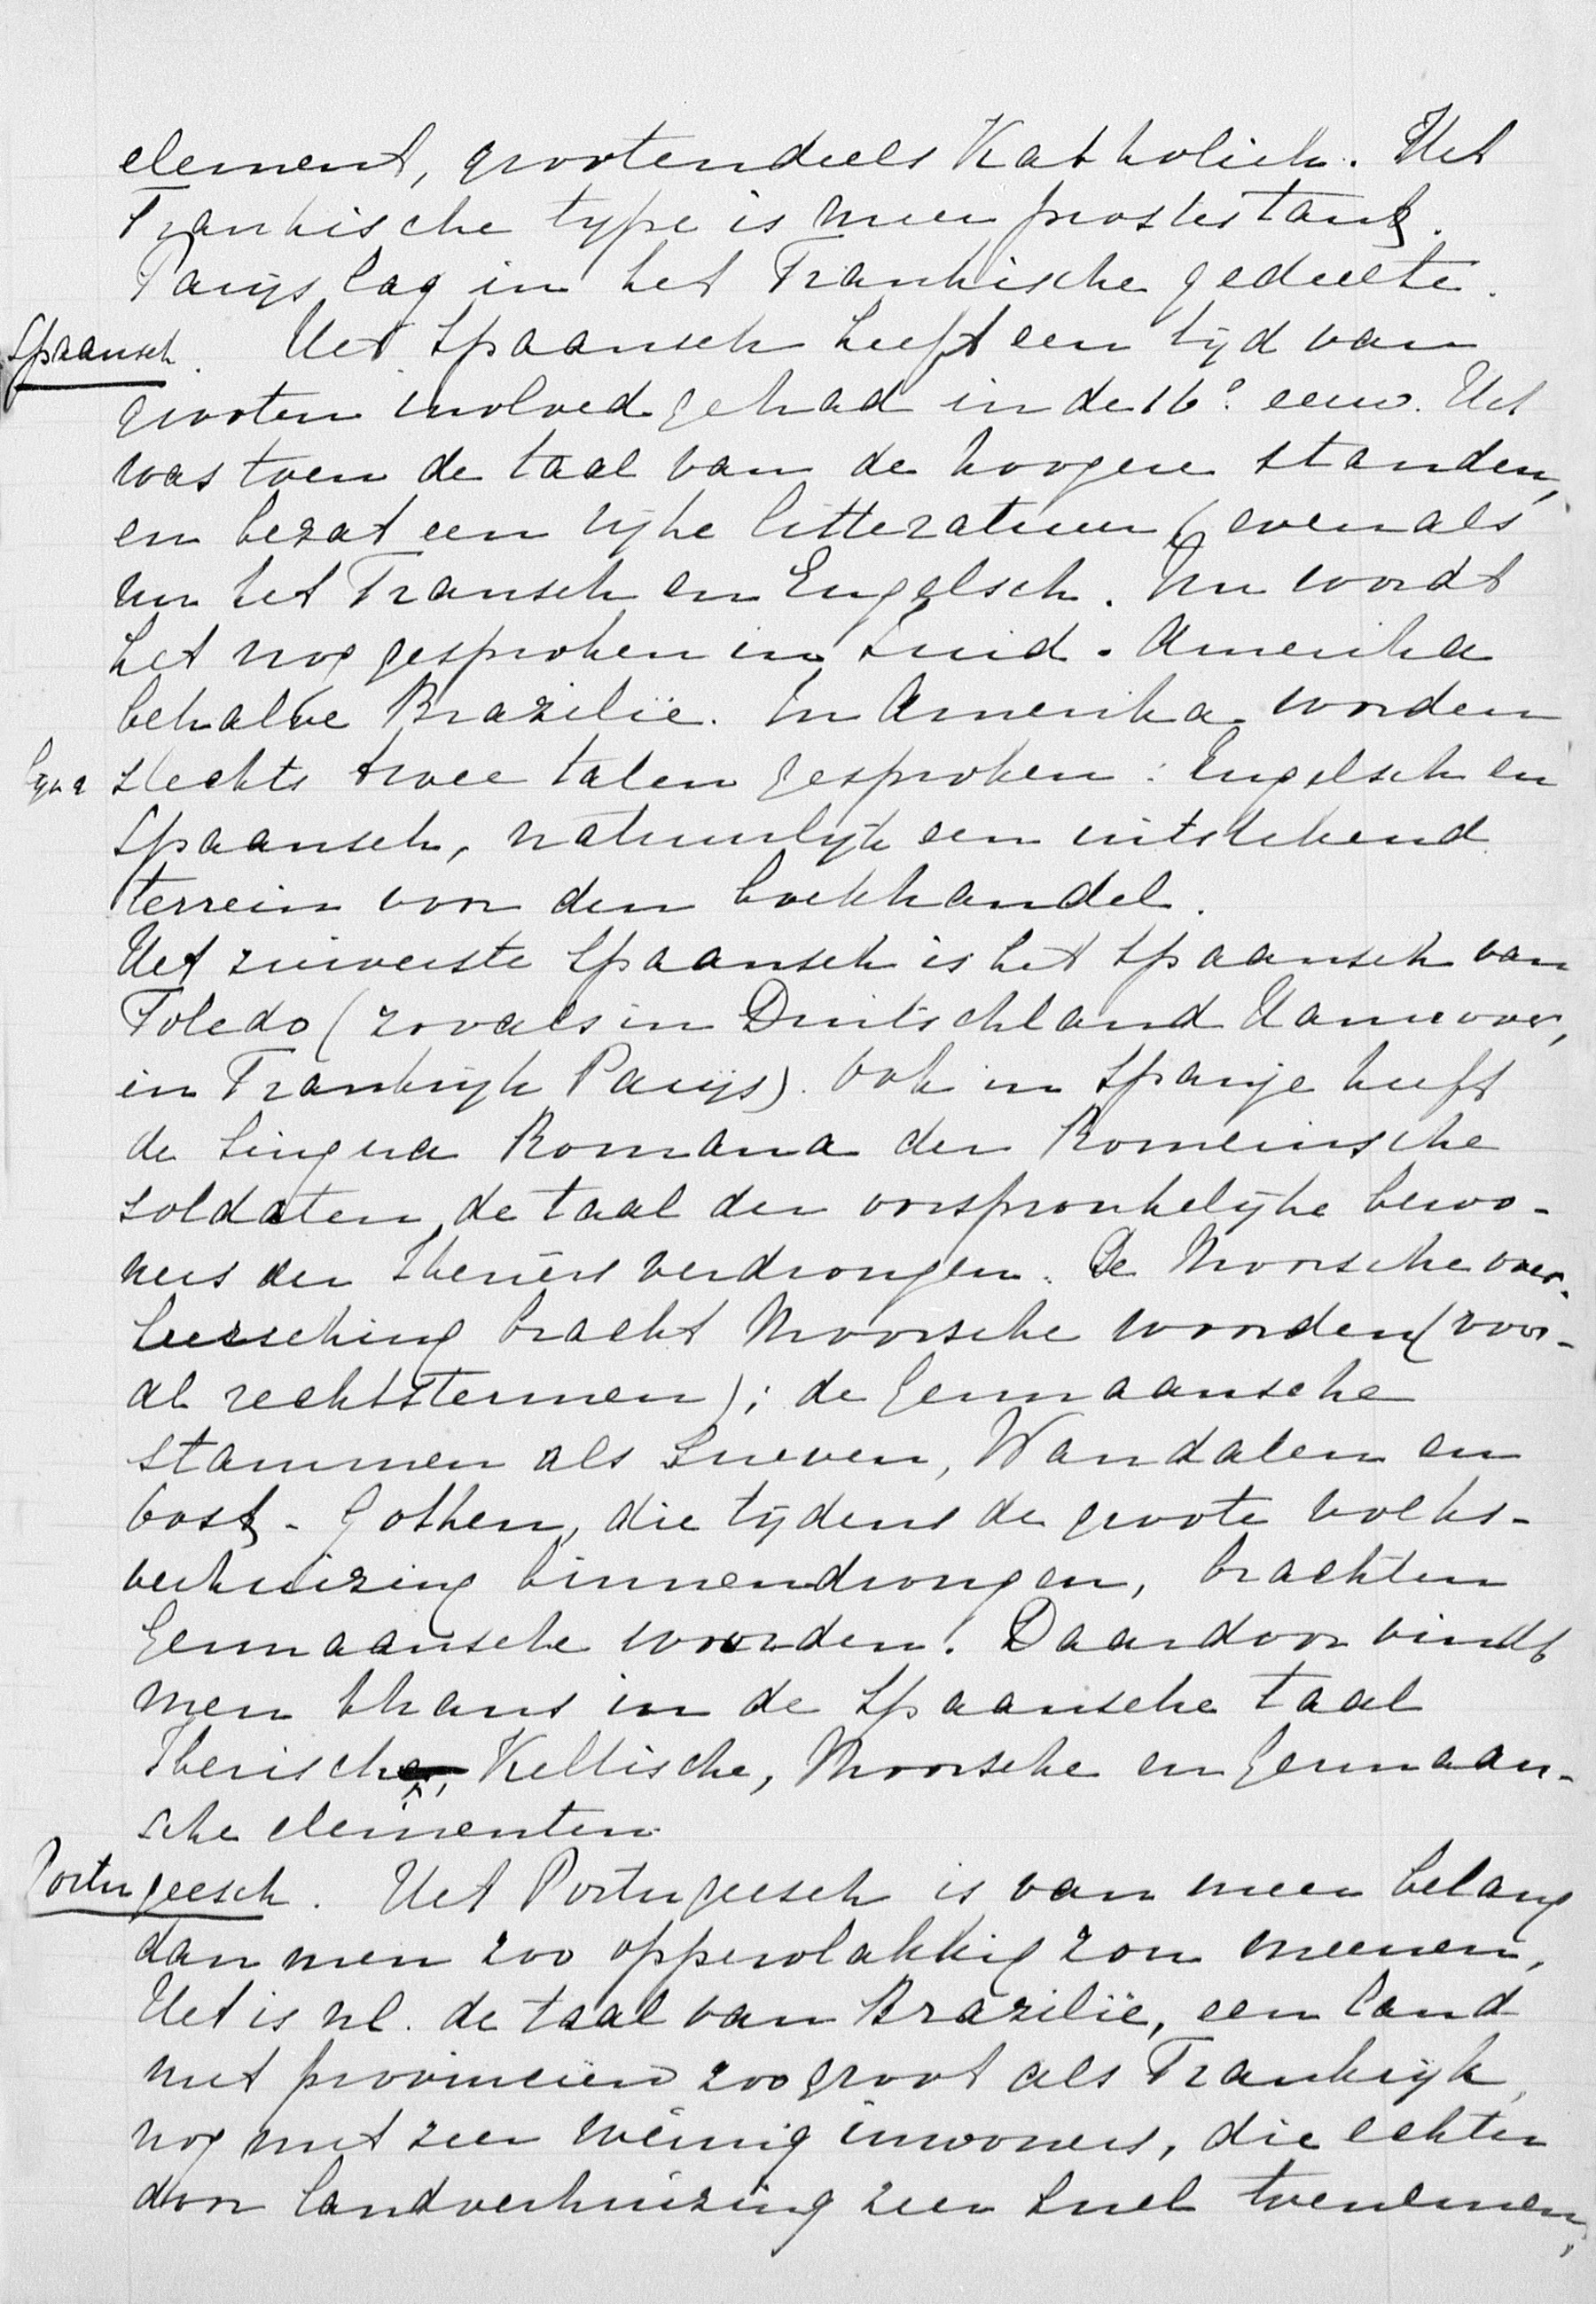 element, grootendeels Katholiek. Het
Frankische type is meer prostestants.
Parijs lag in het Frankische gedeelte.
Spaansch. Het Spaansch heeft een tijd van
grooten invloed gehad in de 16e eeuw. Het
was toen de taal van de hoogere standen,
en bezat een rijke litteratuur (evenals
nu het Fransch en Engelsch. Nu wordt
het nog gesproken in Zuid-Amerika
behalve Brazilië. In Amerika worden
slechts twee talen gesproken: Engelsch en
Spaansch, natuurlijk een uitstekend
terrein voor den boekhandel.
Het zuiverste Spaansch is het Spaansch van
Toledo (zooals in Duitschland Hannover,
in Frankrijk Parijs). Ook in Spanje heeft
de Lingua Romana der Romeinsche
soldaten, de taal der oorspronkelijke bewo-
ners der Iberiërs verdrongen. De Moorsche over-
heersching bracht Moorsche woorden (voor-
al rechtstermen); de Germaansche
stammen als Sueven, Wandalen en
Oost-Gothen, die tijdens de groote volks-
verhuizing binnendrongen, brachten
Germaansche woorden. Daardoor vindt
men thans in de Spaansche taal
Iberische, Keltische, Moorsche en Germaan-
sche elementen.
Portugeesch. Het Portugeesch is van meer belang
dan men zoo oppervlakkig zou meenen,
Het is nl. de taal van Brazilië, een land
met provinciën zoo groot als Frankrijk,
nog met zeer weinig inwoners, die echter
door landverhuizing zeer snel toenemen,